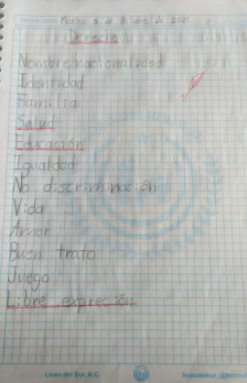 Martes 5 de octubre de 2021
Derecho
Nombre nacionalidad
Identidad
Familia
Salud
Educación
Igualdad
No discriminación
Vida
Amor
Buen trato
Juego
Libre expreción
Liceo del Sur, A.C.